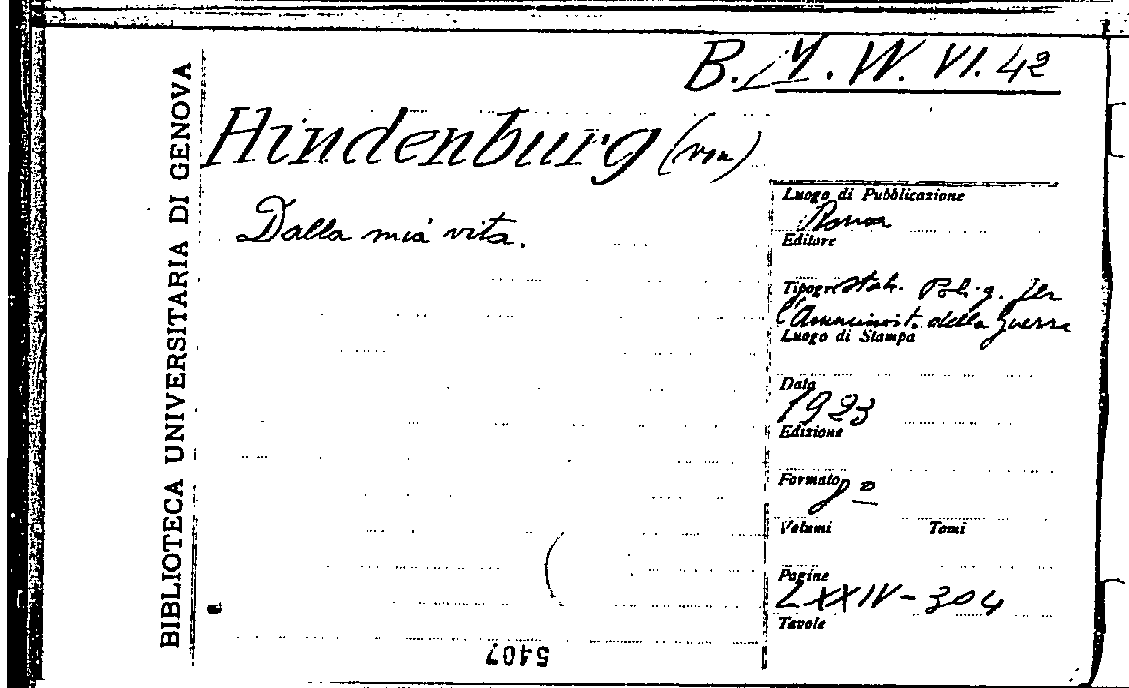 B. M. W. VI. 42
BIBLIOTECA UNIVERSITARIA DI GENOVA
Hindenburg (von)
Dalla mia vita.
Luogo di Pubblicazione
Roma
Editore
Tipogr Stab. Polig. per
l'Amminist. della guerra
Luogo di Stampa
Data
1923
Edizione
Formato 8º
Volumi Tomi
Pagine
LXXIV-304
Tavole
5407